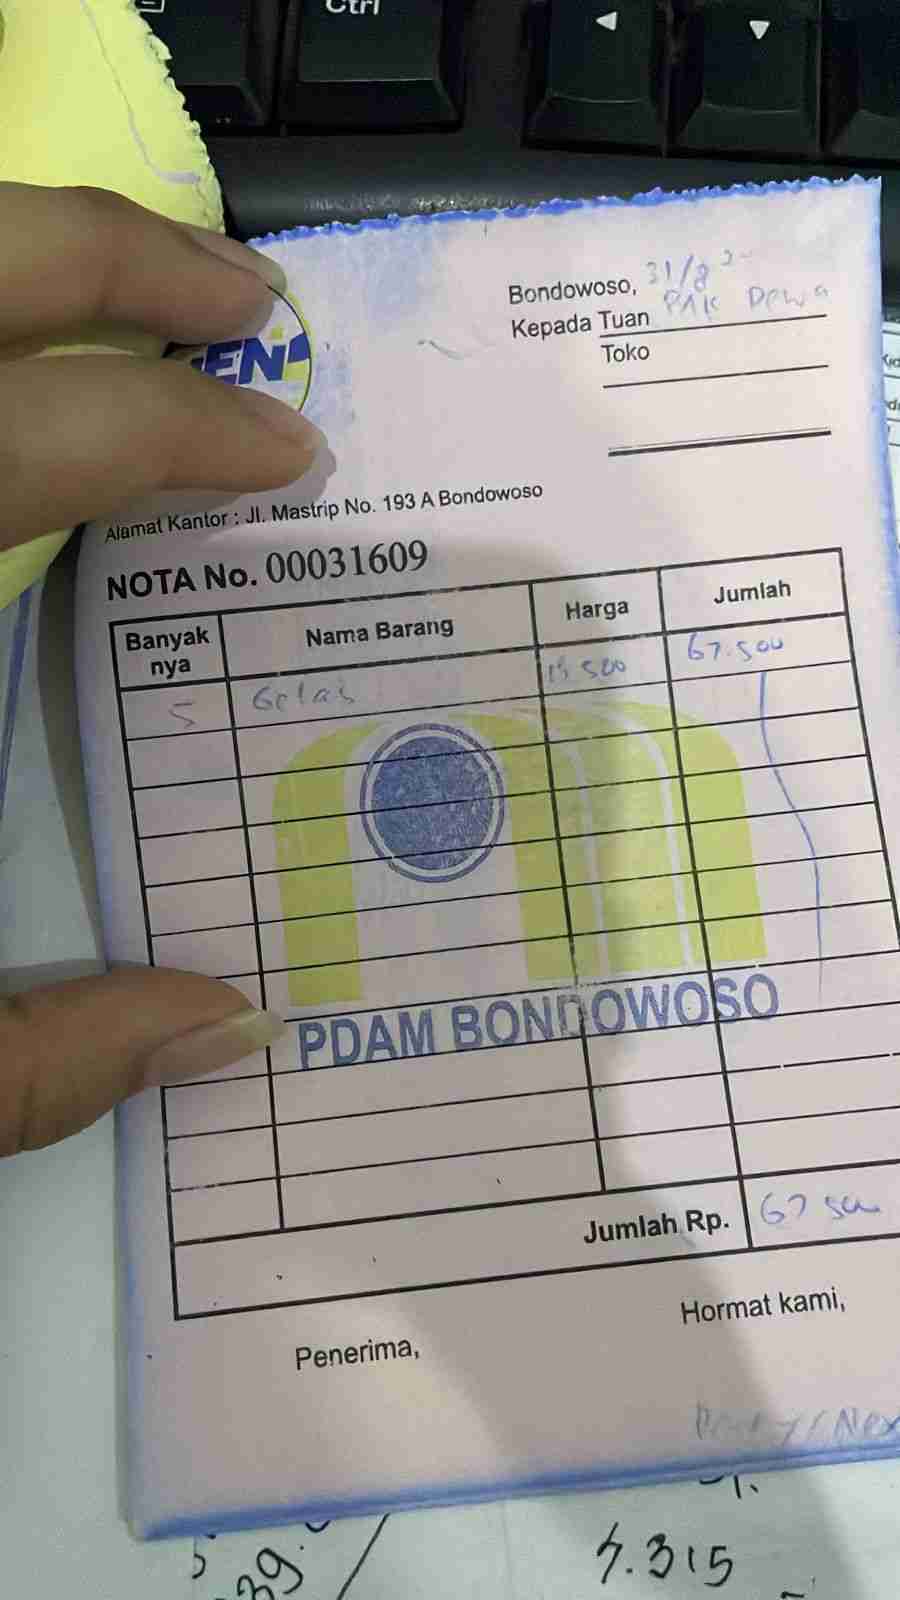 Ctrl
Bondowoso, 31/8
Kepada Tuan PAK Dewa
Toko
EN
Alamat Kantor : Jl. Mastrip No. 193 A Bondowoso
NOTA No. 00031609
Banyak nya Nama Barang Harga Jumlah
5 Gelas 13 500 67.500
PDAM BONDOWOSO
Jumlah Rp. 67 500
Hormat kami,
Penerima,
39.
4.315